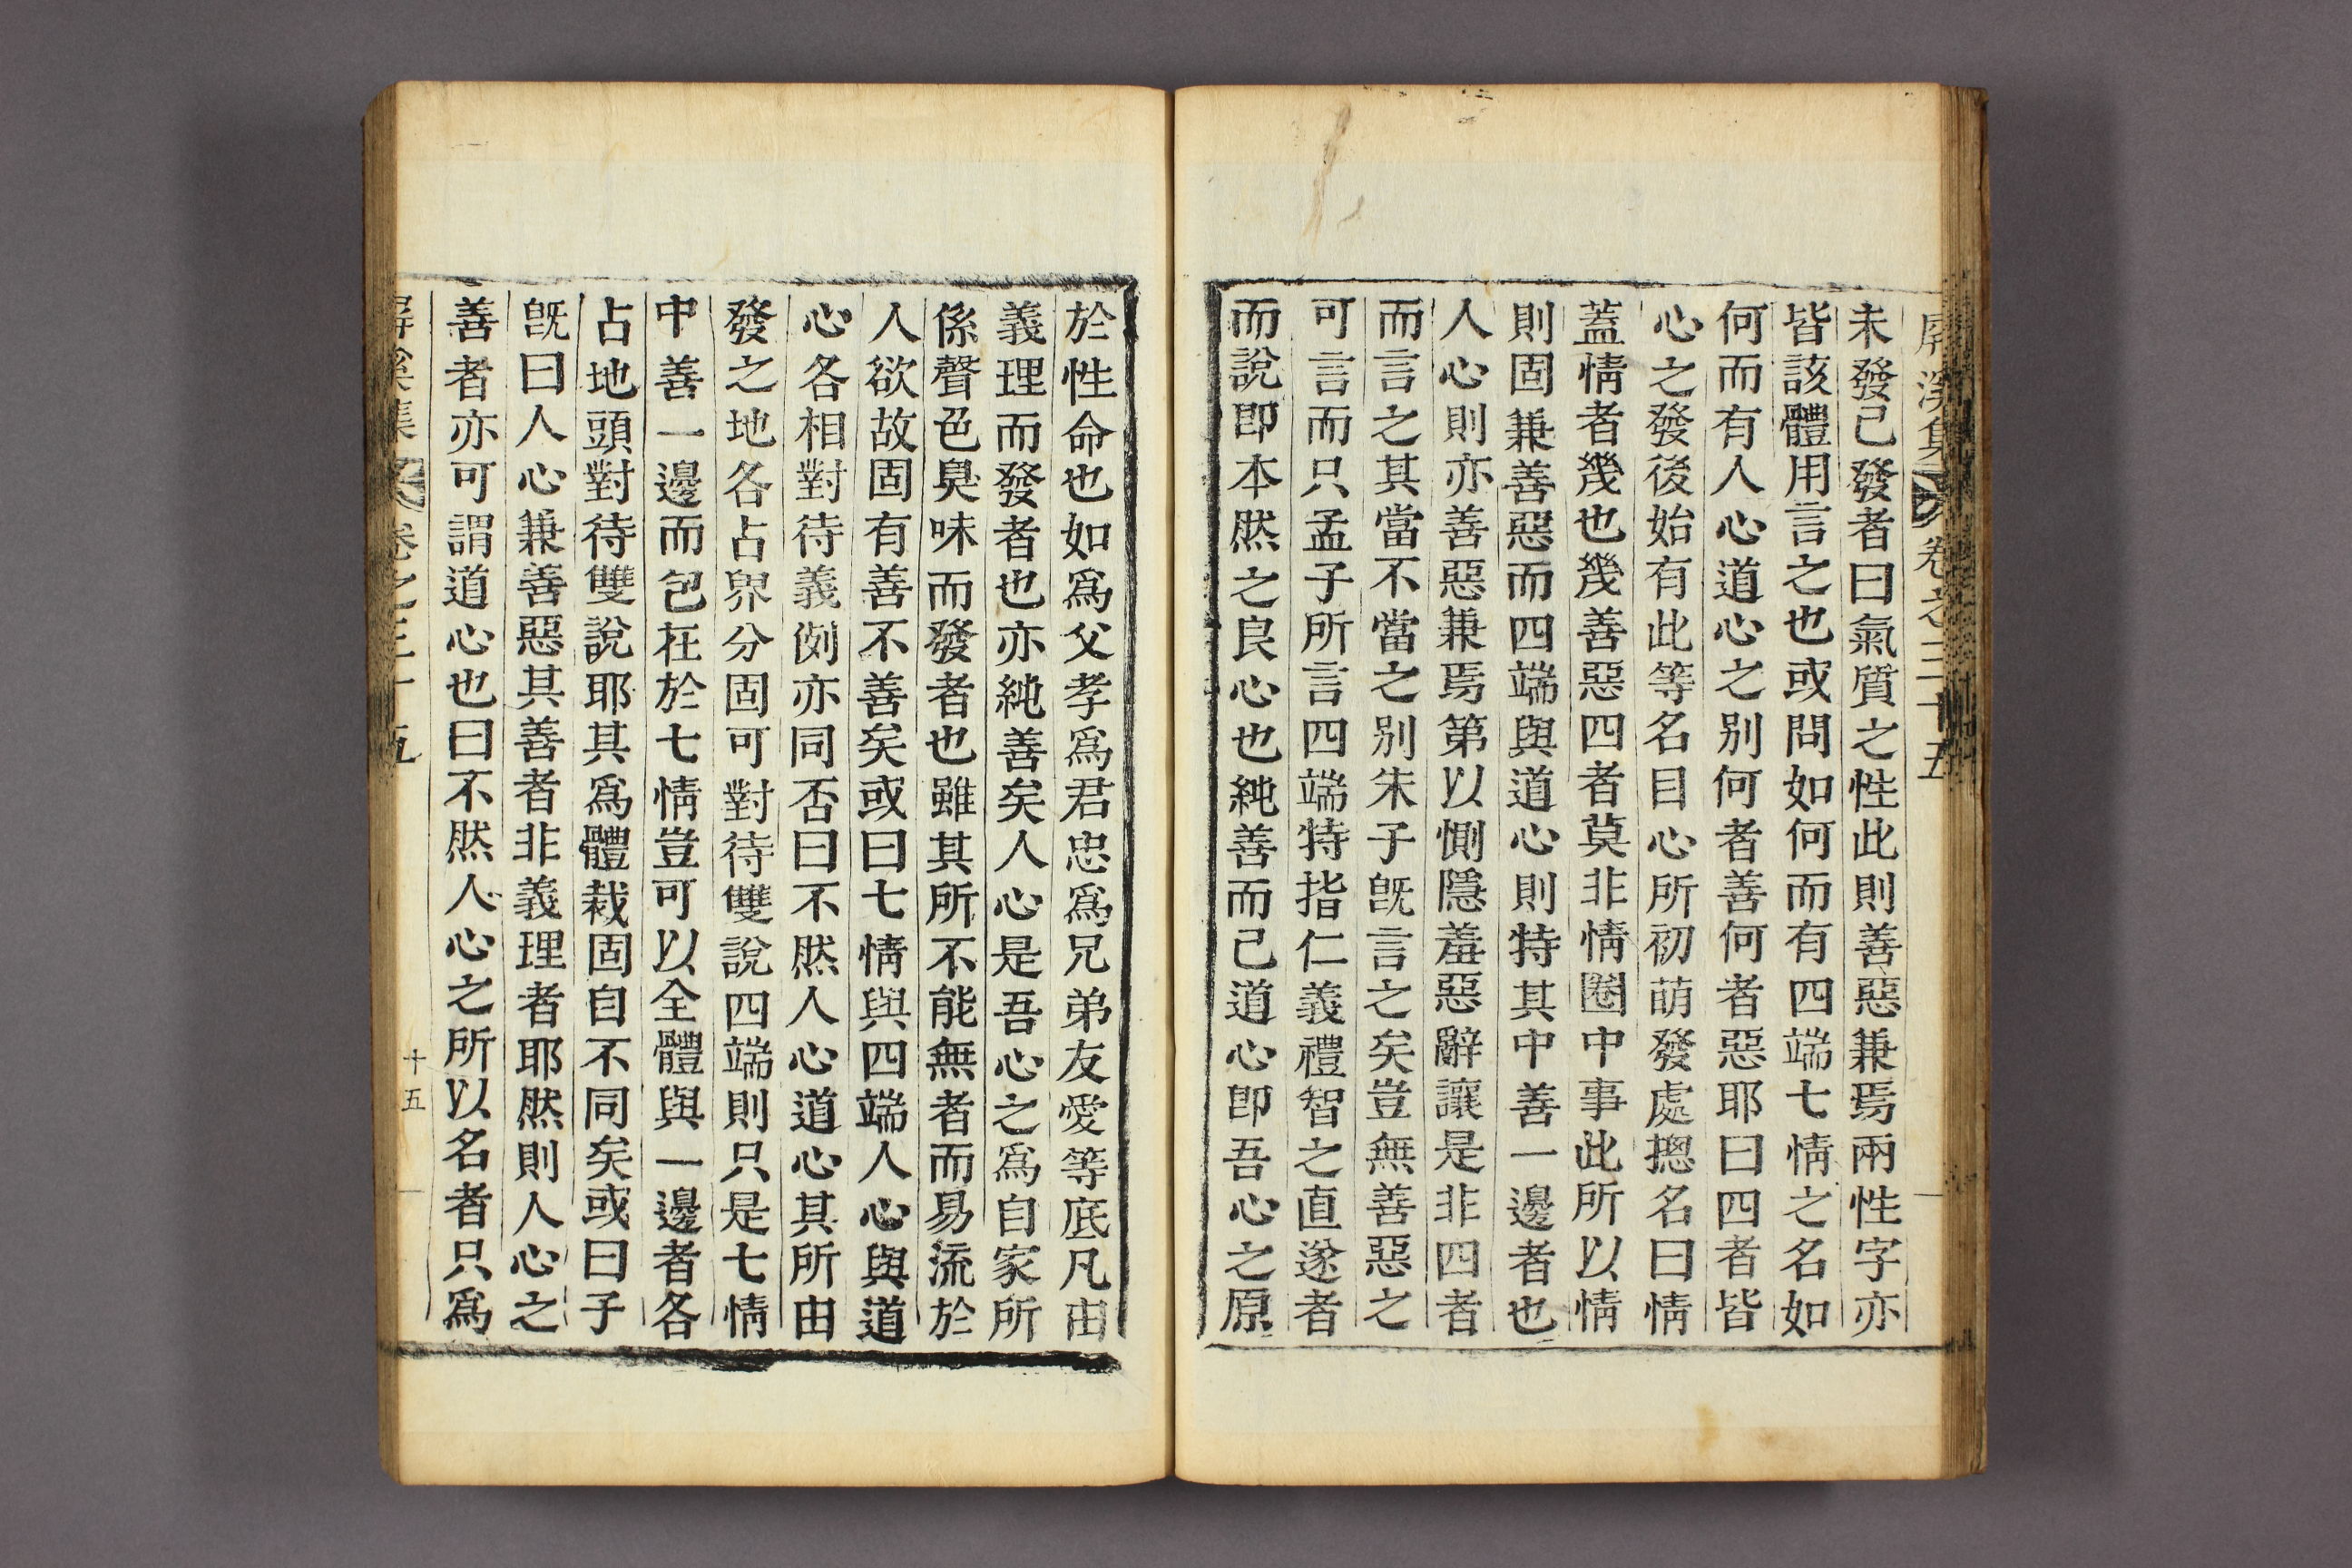 屛溪集 卷之三十五
未發已發者曰氣質之性此則善惡兼焉兩性字亦
皆該體用言之也或問如何而有四端七情之名如
何而有人心道心之別何者善何者惡耶曰四者皆
心之發後始有此等名目心所初萌發處摠名曰情
蓋情者幾也幾善惡四者莫非情圈中事此所以情
則固兼善惡而四端與道心則特其中善一邊者也
人心則亦善惡兼焉第以惻隱羞惡辭讓是非四者
而言之其當不當之別朱子旣言之矣豈無善惡之
可言而只孟子所言四端特指仁義禮智之直遂者
而說卽本然之良心也純善而已道心卽吾心之原
於性命也如爲父孝爲君忠爲兄弟友愛等底凡由
義理而發者也亦純善矣人心是吾心之爲自家所
係聲色臭味而發者也雖其所不能無者而易流於
人欲故固有善不善矣或曰七情與四端人心與道
心各相對待義例亦同否曰不然人心道心其所由
發之地各占界分固可對待雙說四端則只是七情
中善一邊而包在於七情豈可以全體與一邊者各
占地頭對待雙說耶其爲體裁固自不同矣或曰子
旣曰人心兼善惡其善者非義理者耶然則人心之
善者亦可謂道心也曰不然人心之所以名者只爲
屛溪集 卷之三十五 十五